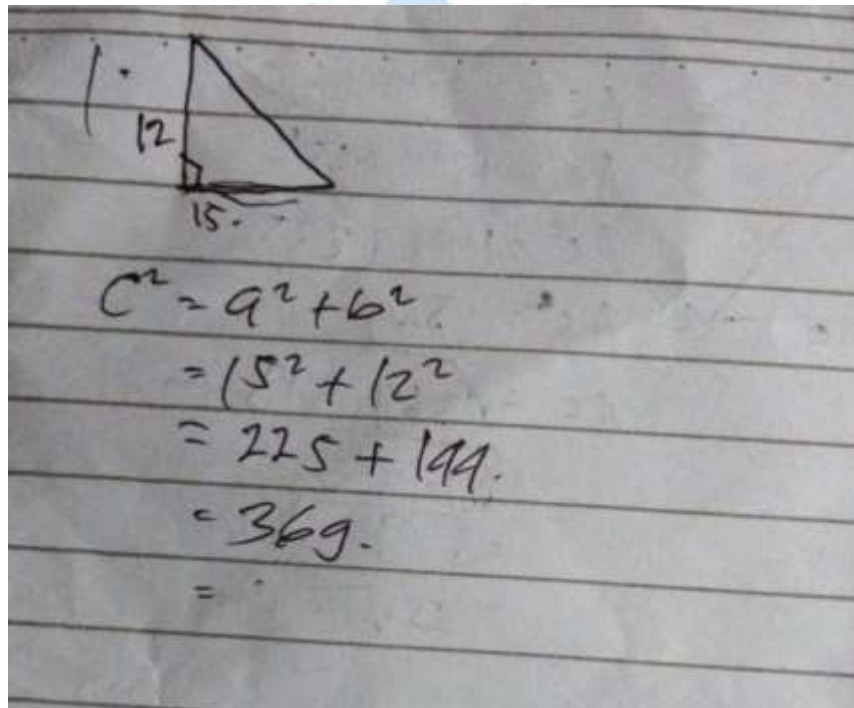 1.
12
15.
C² = a² + b²
= 15² + 12²
= 225 + 144.
= 369.
=